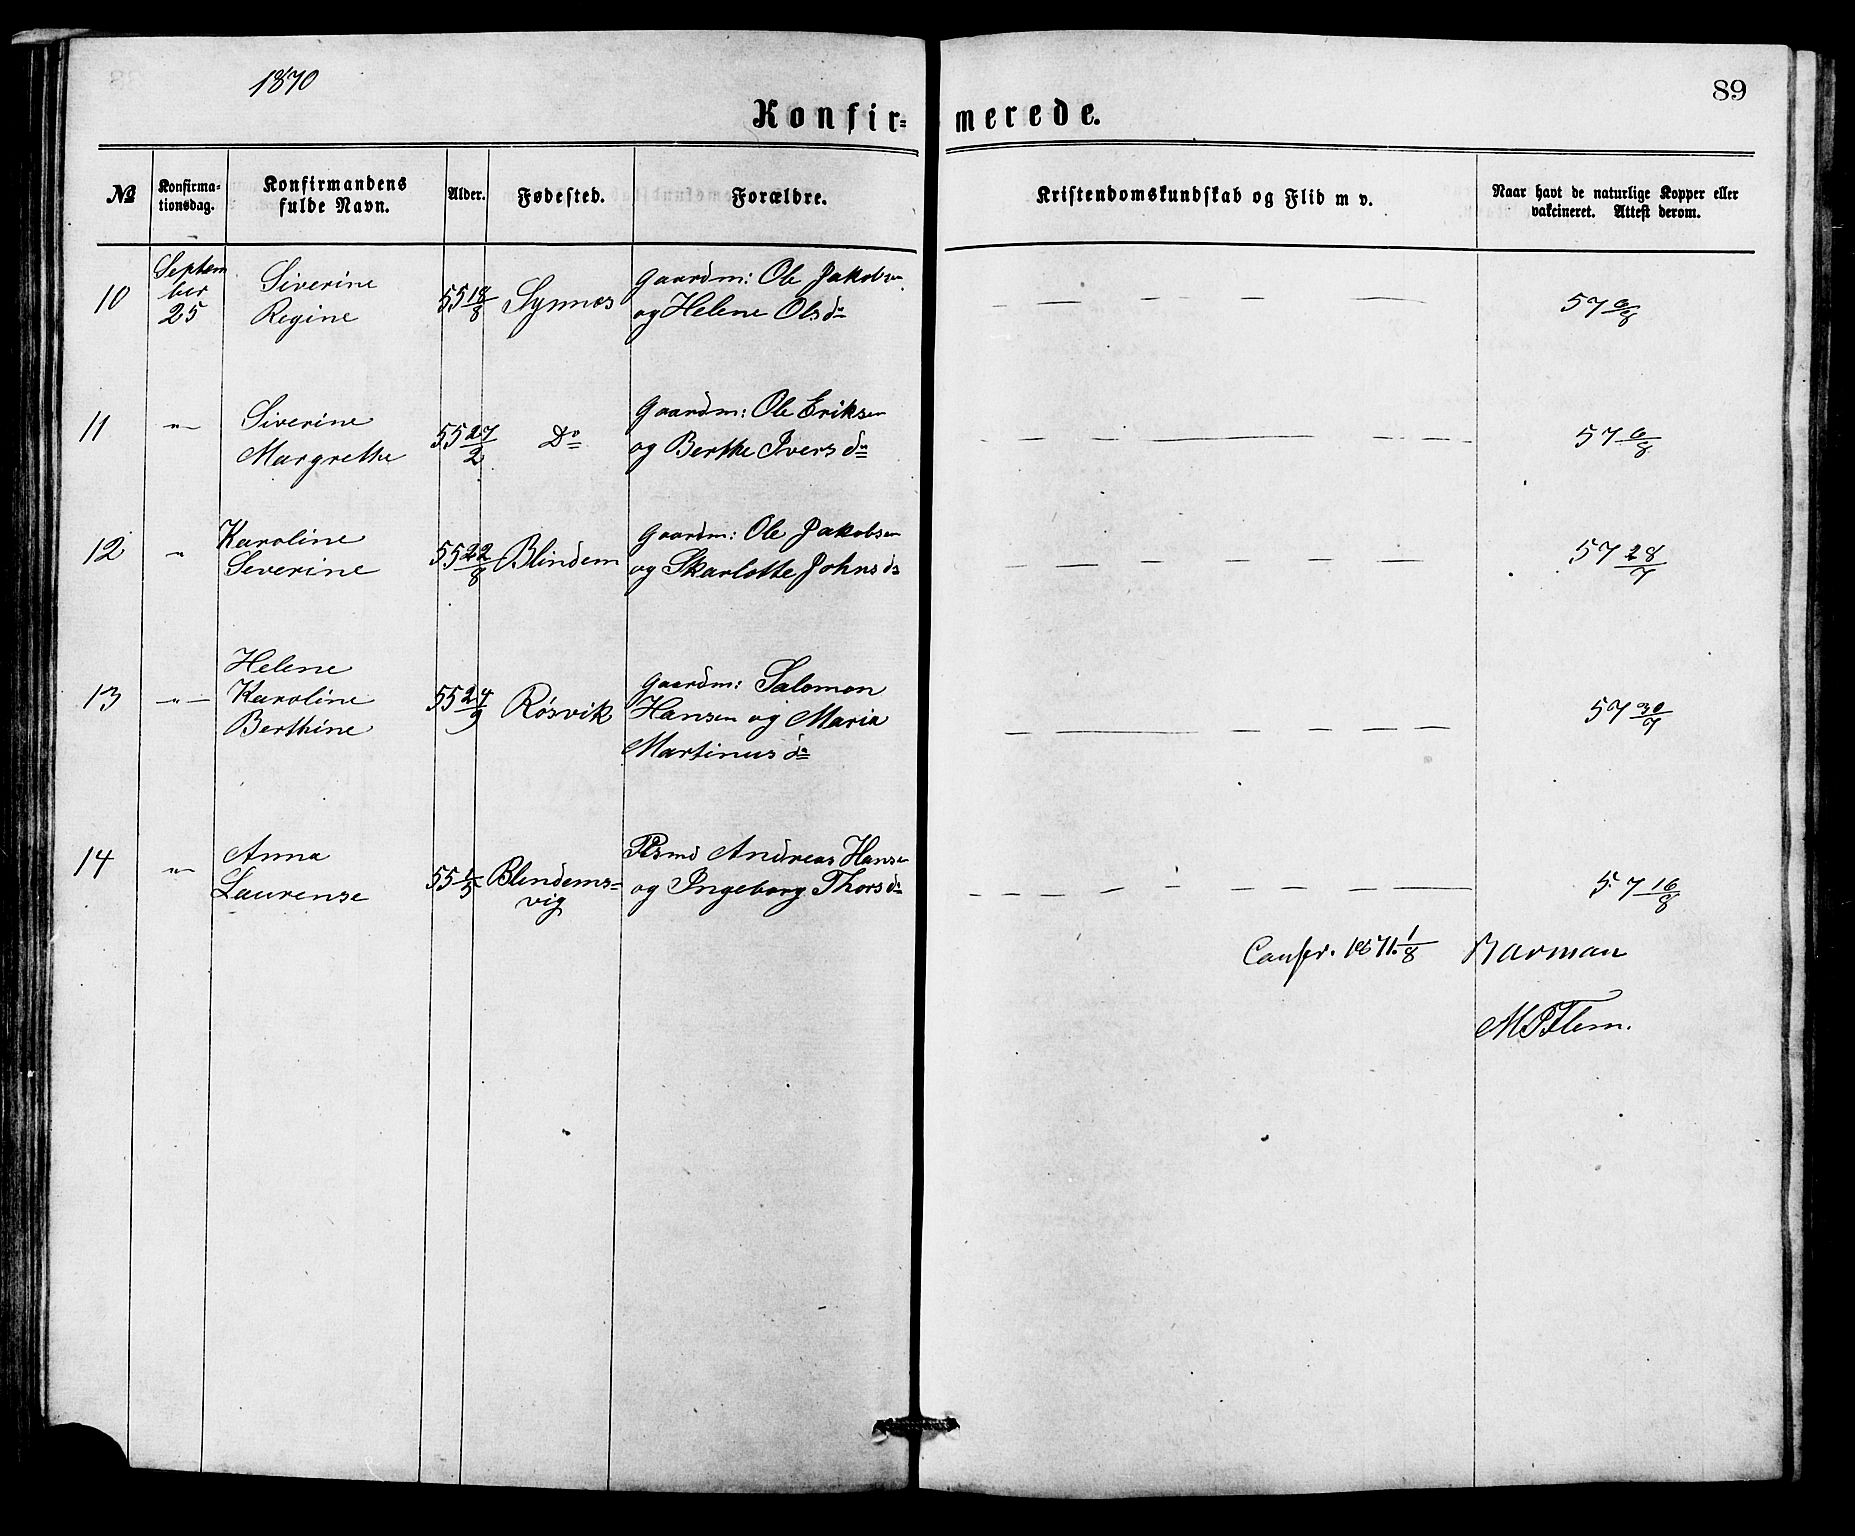 1870
89
Konfir= merede.
No
Konfirma-
tionsdag.
Konfirmandens
fulde Navn.
Alder.
Fødested.
Forældre.
Kristendomskundskab og Flid m v.
Naar havt de naturlige Kopper eller
vakcineret. Attest derom.
10 Septem
ber
25
Siverine
Regine
55 18/8
Synnes
Gaardm: Ole Jakobsen
og Helene Olsdr
57 6/8
11 -"- Siverine
Margrethe
55 27/2
Do
Gaardm: Ole Eriksen
og Berthe Iversdr
57 6/8
12 " Karoline
Severine
55 22/8
Blindem
Gaardm: Ole Jakobsen
og Skarlotte Johnsdr
57 28/7
13 -"- Helene
Karoline
Berthine
55 24/9
Røsvik
Gaardm: Salomon
Hansen og Maria
Martinusdr
57 30/7
14 -"- Anna
Laurense
55
Blindems=
vig
Plsmd Andreas Hansen
og Ingeborg Thorsdr
57 16/8
Confer. 1871. 1/8
MPFlem.